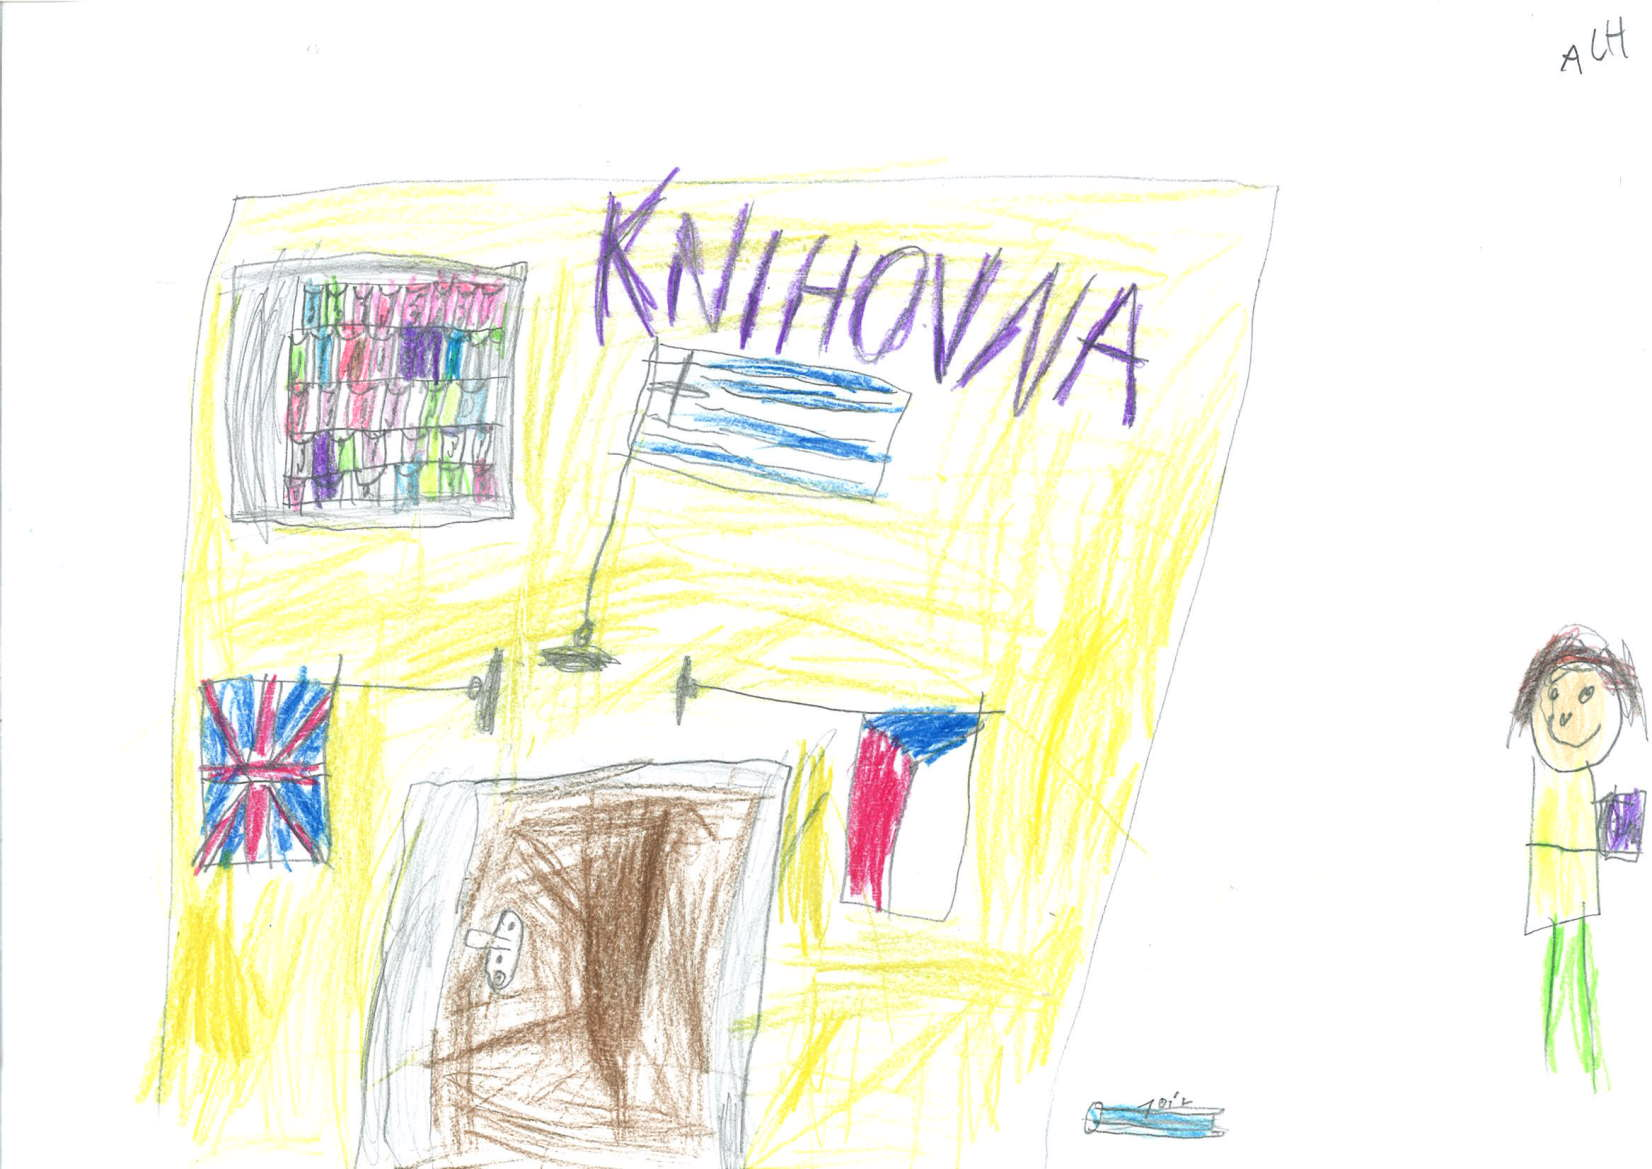 ALH
KNIHOVNA